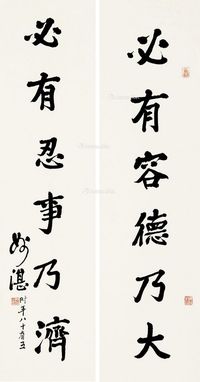 必有容德乃大
必有忍事乃濟
妙湛
时年八十有五